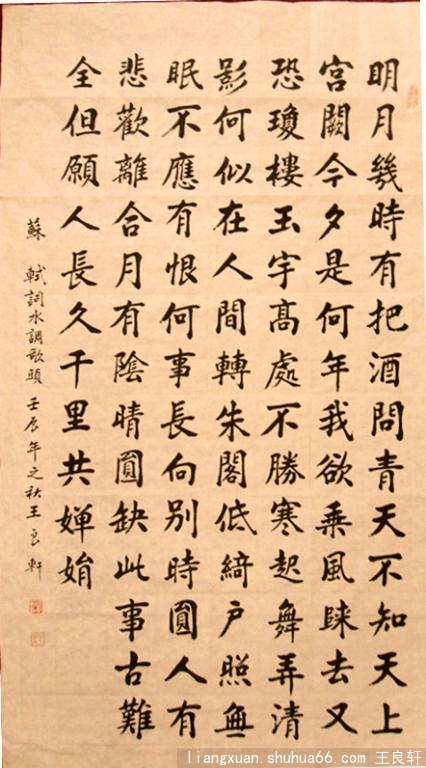 明月幾時有把酒問青天不知天上
宮闕今夕是何年我欲乘風歸去又
恐瓊樓玉宇高處不勝寒起舞弄清
影何似在人間轉朱閣低綺戶照無
眠不應有恨何事長向別時圓人有
悲歡離合月有陰晴圓缺此事古難
全但願人長久千里共嬋娟
蘇軾詞水調歌頭 壬辰年之秋王良軒
liangxuan.shuhua66.com 王良轩